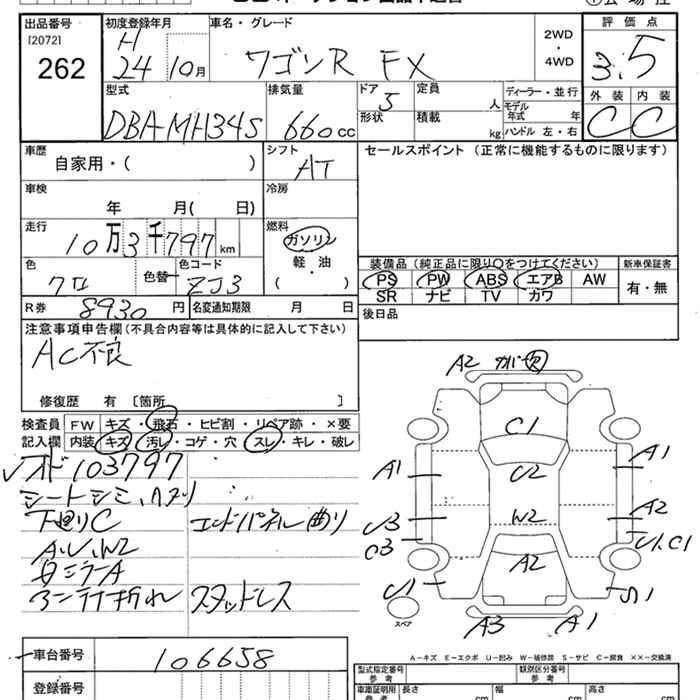 出品番号 初度登録年月 車名・グレード 評価点
[2072] H
262 24 10月 ワゴンR FX 2WD ・ 4WD 3.5
型式 排気量 ドア 定員 ディーラー・並行 外装 内装
DBA-MH34S 660cc 5 人 モデル年式 年 C C
形状 積載 kg ハンドル 左・右
車歴 シフト セールスポイント (正常に機能するものに限ります)
自家用・( ) AT
車検 冷房
年 月( 日)
走行 燃料
10万3千797km ガソリン
軽・油
( )
色 色替 色コード 装備品 (純正品に限り○をつけてください) 新車保証書
クロ ZJ3 PS PW ABS エアB AW 有・無
SR ナビ TV カワ
R券 8930円 名変通知期限 月 日 後日品
注意事項申告欄(不具合内容等は具体的に記入して下さい)
AC不良
修復歴 有 〔箇所 〕
検査員 FW キズ・飛石・ヒビ割・リペア跡・×要
記入欄 内装 キズ・汚レ・コゲ・穴・スレ・キレ・破レ
オド103797
シートシミ、ヘタリ
下廻りC エンドパネル曲り
A.U.W2
スタッドレス
A2 ガバ欠
C1
U2
W2
A2
A1 A1
U3 A2
C3 U1.C1
U1 S1
スペア
A3 A1
A-キズ E-エクボ U-凹み W-補修跡 S-サビ C-腐食 XX-交換済
車台番号 106658
登録番号
型式指定番号 参考 類別区分番号 参考
車庫証明用 参考 長さ cm 幅 cm 高さ cm